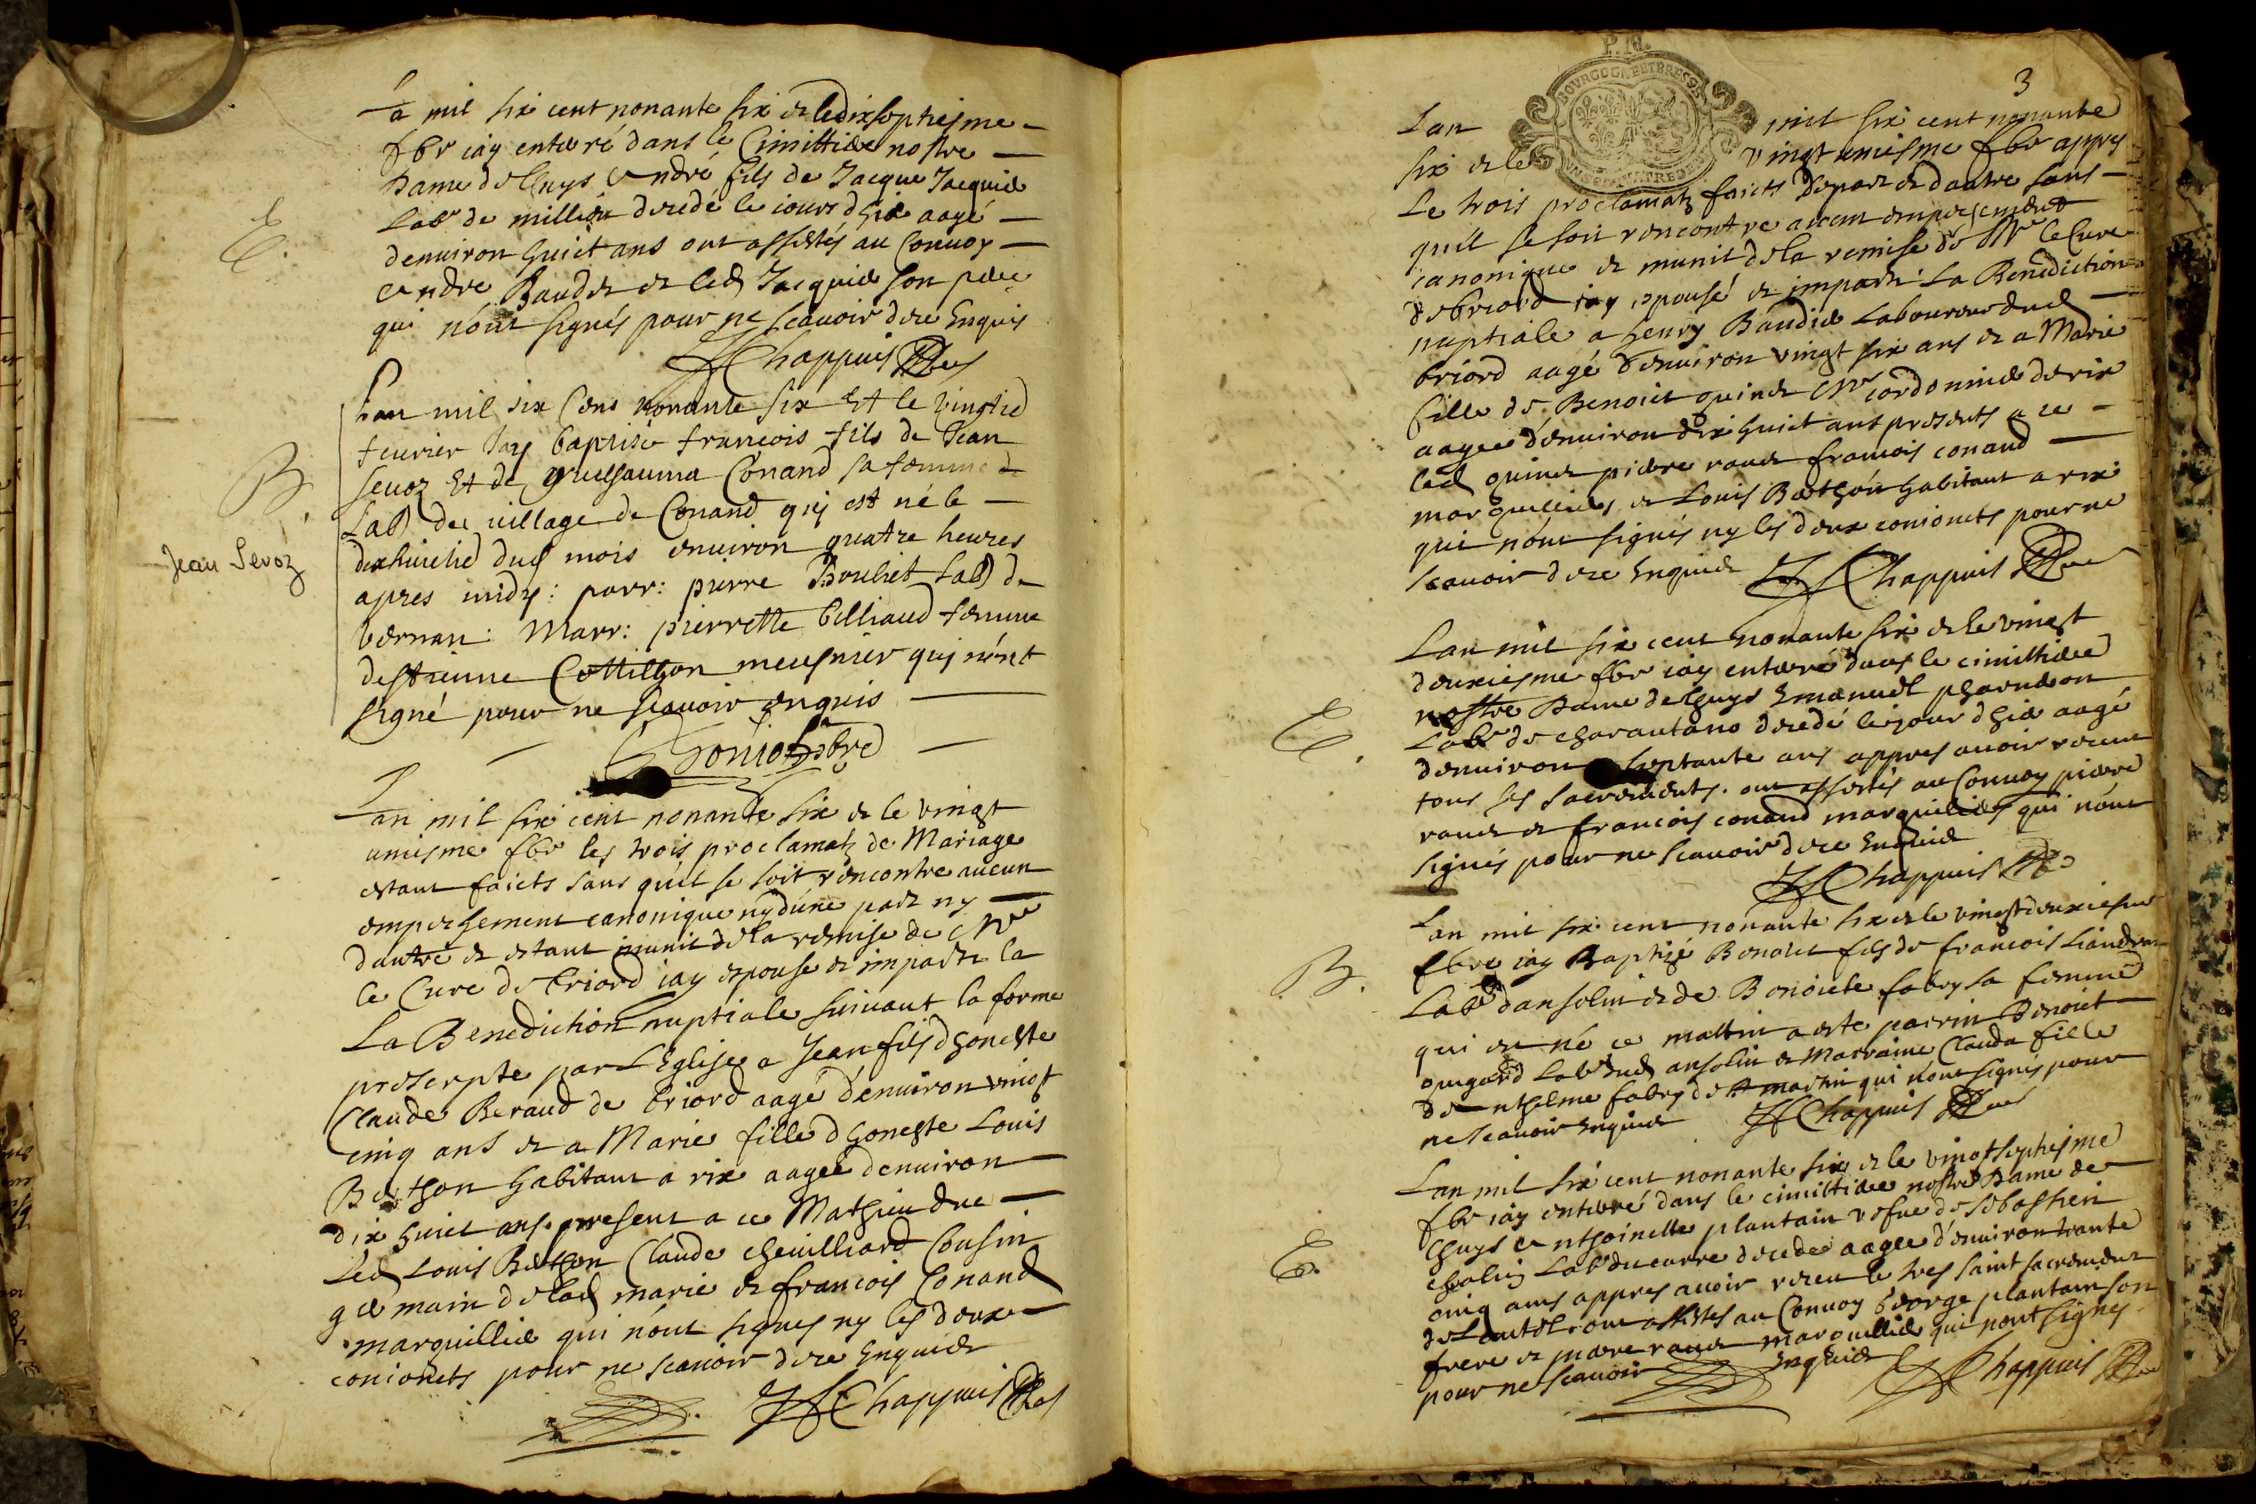 Lan mil six cent nonante six & le dixseptiesme
fbr iay enterré dans le Cimittiere nostre
Dame de lhuys André fils de Jacque Jacquier
Labr de millieu decedé le iours dhier aagé
denuiron huict ans ont assistés au Conuoy
Andre Baudet & led Jacquier son pere
qui nont signés pour ne scauoir de ce Enquis
Chappuis
E.
Lan mil six Cens nonante six Et le vingtie
feurier Jay baptisé françois fils de Jean
Seuoz Et de guilhauma Conand sa femme
Lab de village de Conand qui est né le
dixhuictie dud mois enuiron quatre heures
apres midy : parr: pierre Bouliet Lab de
vernan : Marr: pierrette billiaud femme
destienne Cottillon meusnier qui nont
signé pour ne scauoir enquis
B.
Jean Sevoz
Lan mil six cent nonante six & le vingt
uniesme fbr les trois proclamatz de Mariage
estant faicts sans quil se soit rencontre aucun
empeschement canonique ny dune part ny
dautre & estant munit de la remise de Mre
le Cure de briord iay espouse & imparti la
La Benediction nuptiale suiuant la forme
prescrpte par LEglise a Jean fils dhoneste
Claude Beraud de briord aagé denuiron vingt
cinq ans & a Marie fille dhoneste Louis
Berthon habitant a rix aageé denuiron
dix huict ans. present a ce Mathieu duc
Led Louis Berthon Claude cheuilliard Cousin
germain de lad marie & francois Conand
marquillier qui nont signes ny les deux
conioncts pour ne scauoir de ce Enquis
Chappuis
P.N.
BOURGOGNE ET BRESSE
3
Lan mil six cent nonante
six & le vingt uniesme fbr appres
Le trois proclamatz faicts depart & dautre sans
quil se soit rencontre aucun empeschement
canonique & munit de la remise de Mre le Cure
de briord iay espousé & imparti La Benediction
nuptiale a henry Baudier Laboureur dud
briord aagé denuiron vingt six ans & a Marie
fille de Benoict quinet Mre cordonnier de rix
aageé denuiron dix huict ans presents a ce
led quinet pierre rauet francois conand
marquilliers, & Louis Berthon habitant a rix
qui nont signés ny les deux conioncts pour ne
scauoir de ce Enquis Chappuis
Lan mil six cent nonante six & le vingt
deuxiesme fbr iay enterré dans le cimittiere
nostre Dame de lhuys Emanuel
Labr de charautano decedé le jour dhier aagé
denuiron septante ans appres auoir receu
tous les sacrements. ont assistés au Conuoy pierre
rauet & francois conand marquilliers qui nont
signés pour ne scauoir de ce Enquis
Chappuis
E.
Lan mil six cent nonante six & le vingtdeuxiesme
fbre iay Baptizé Benoict fils de francois
Labr dansolin & de Benoicte fabry sa femme
qui est né ce mattin a esté parrin Benoict
Labr dud ansolin & Marraine Clauda fille
de nthelme fabry de st martin qui nont signés pour
ne scauoir Enquis Chappuis
B.
Lan mil six cent nonante six & le vingtseptiesme
fbr iay enterré dans le cimittiere nostre Dame de
lhuys Anthoinette plantain vefue de sebastien
Labr decedee aagee denuiron trante
cinq ans appres auoir receu le tres saint sacrement
de Lautel. ont assistés au Conuoy George plantain son
frere & pierre rauet marquillier qui nont signes
pour ne scauoir Enquis Chappuis
E.